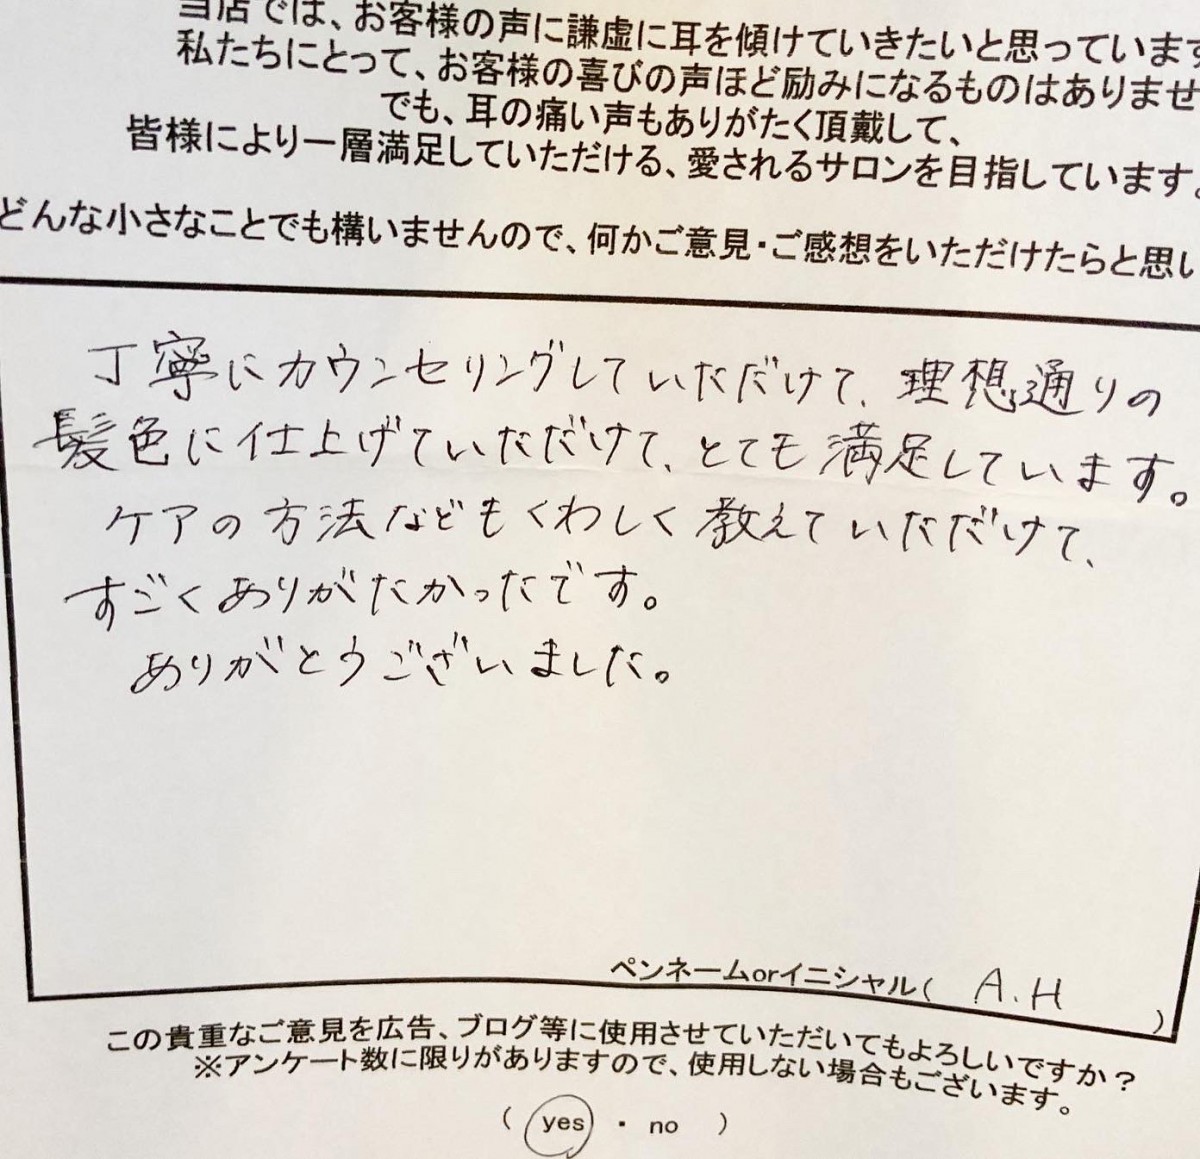 当店では、お客様の声に謙虚に耳を傾けていきたいと思っています
私たちにとって、お客様の喜びの声ほど励みになるものはありませ
でも、耳の痛い声もありがたく頂戴して、
皆様により一層満足していただける、愛されるサロンを目指しています。
どんな小さなことでも構いませんので、何かご意見・ご感想をいただけたらと思い
丁寧にカウンセリングしていただけて、理想通りの
髪色に仕上げていただけて、とても満足しています。
ケアの方法などもくわしく教えていただけて、
すごくありがたかったです。
ありがとうございました。
ペンネームorイニシャル( A.H )
この貴重なご意見を広告、ブログ等に使用させていただいてもよろしいですか?
※アンケート数に限りがありますので、使用しない場合もございます。
( yes ・ no )